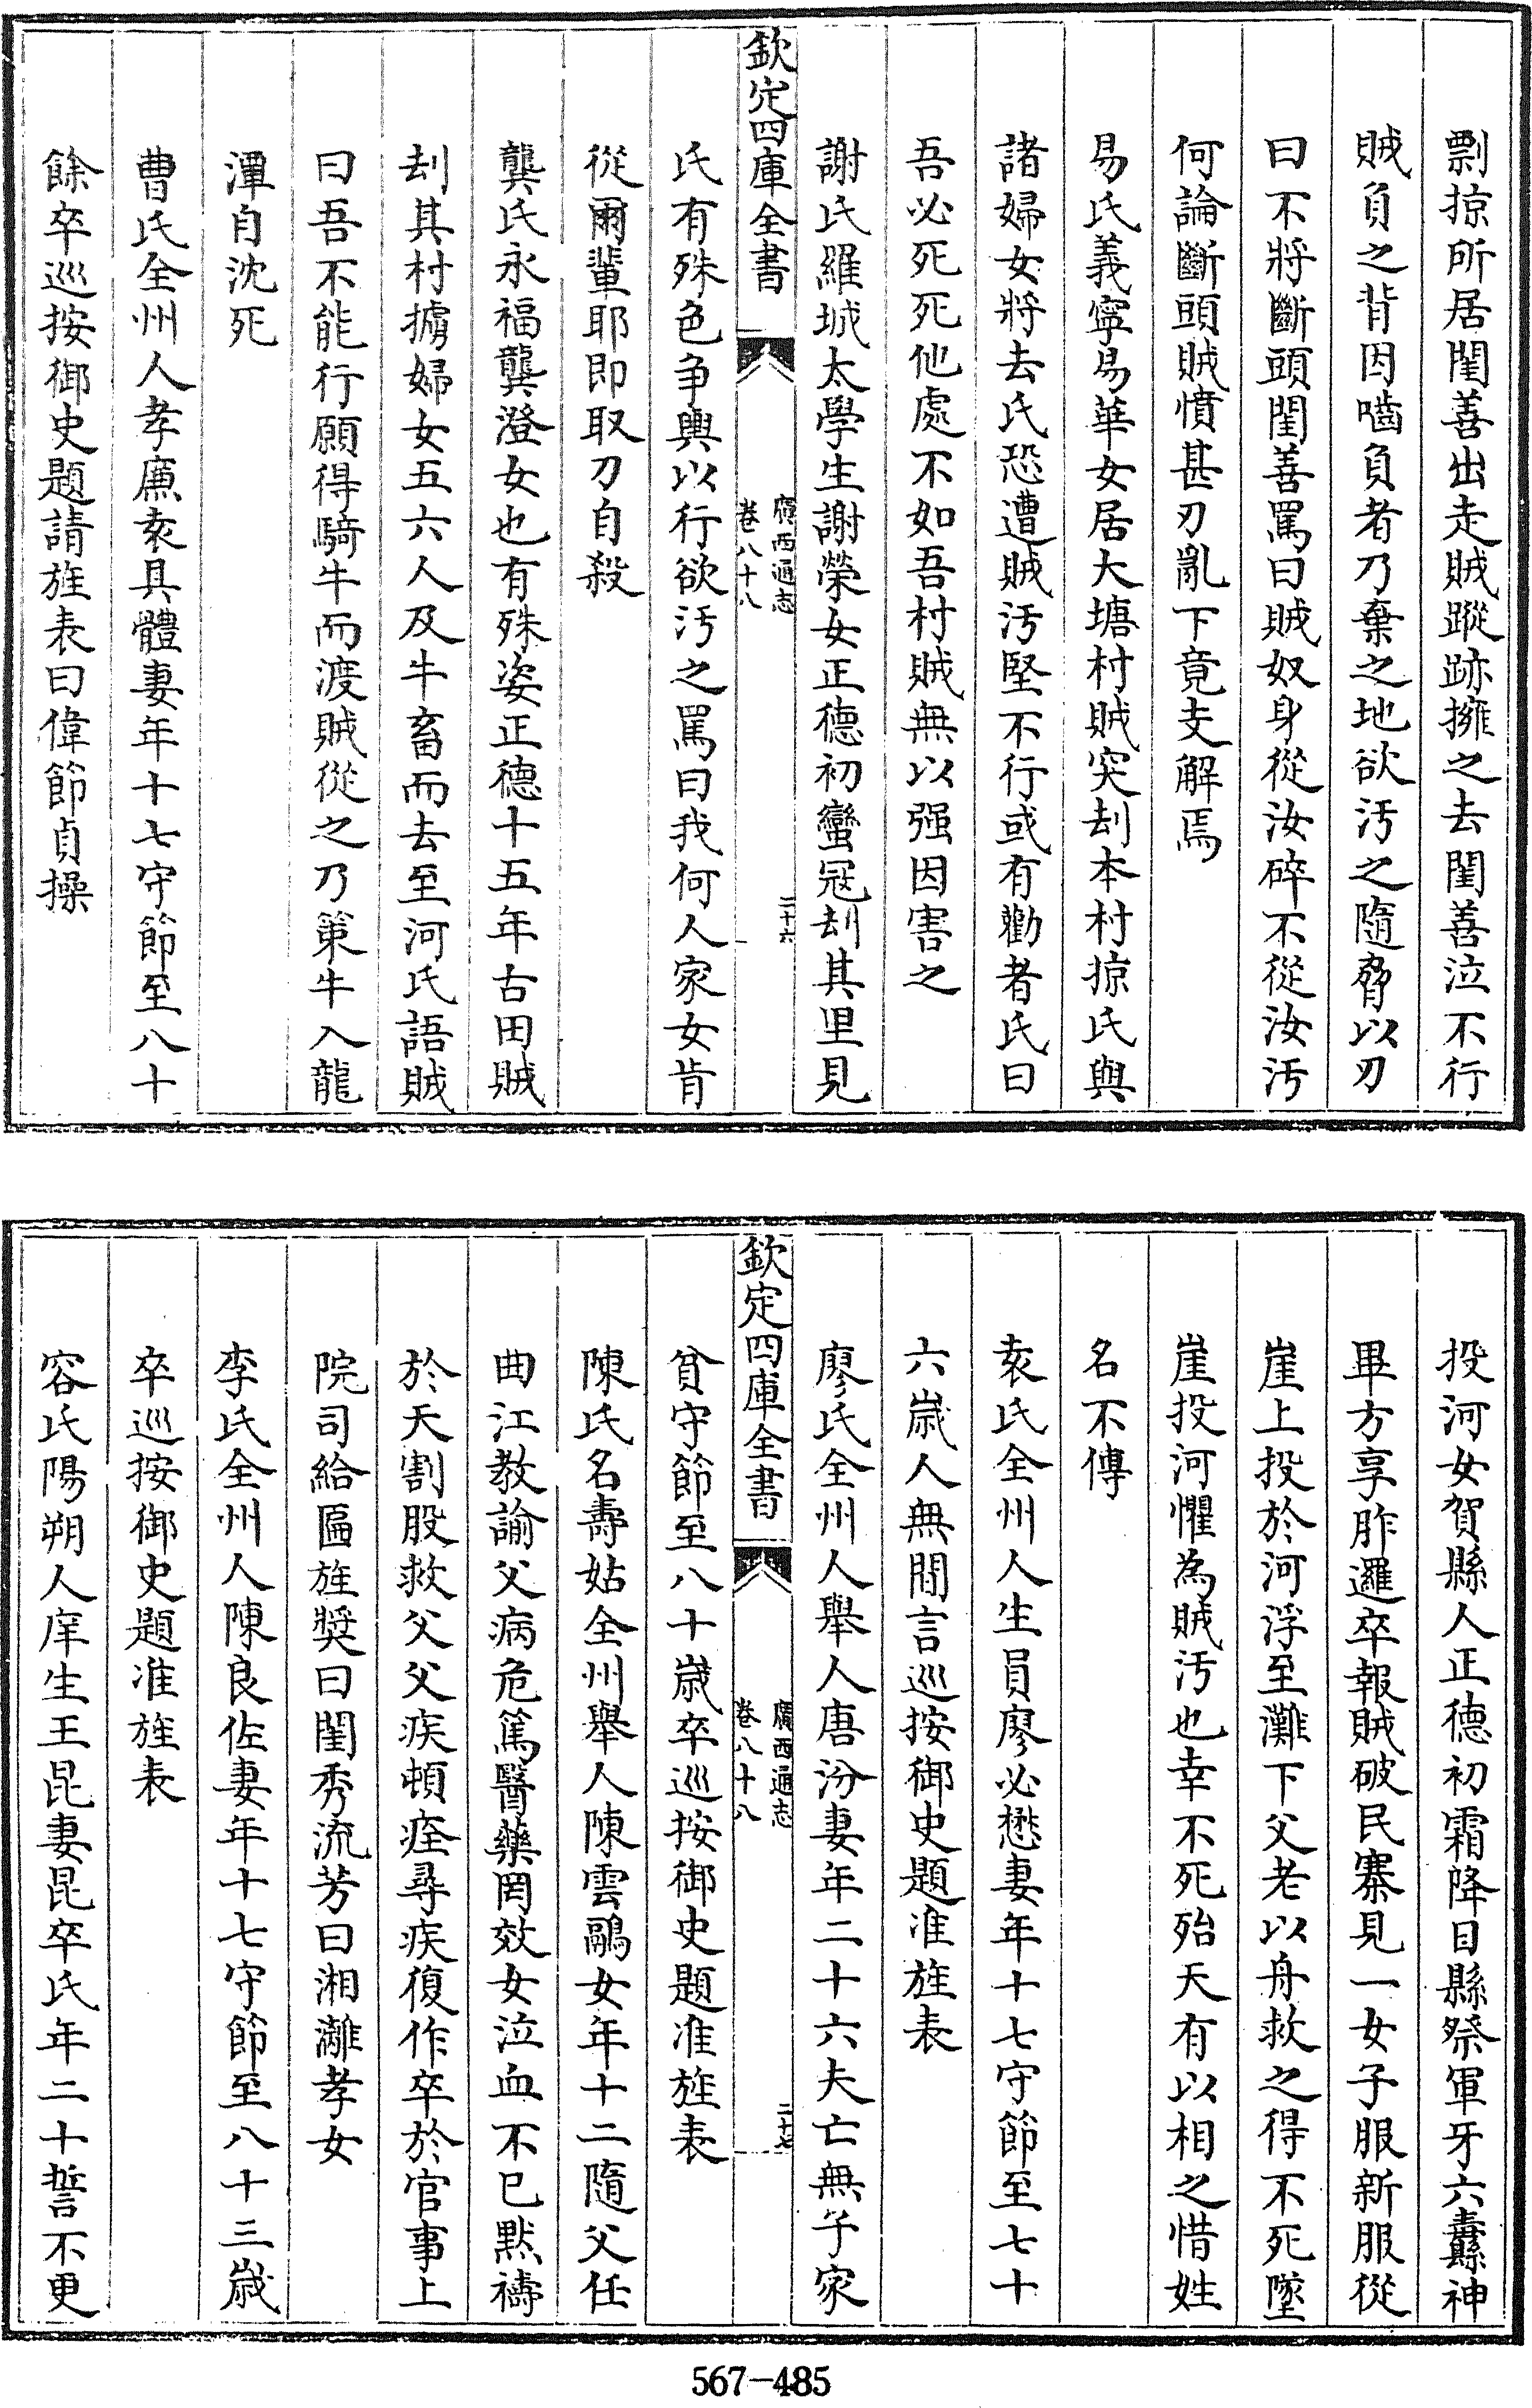 剽掠所居閨善出走賊蹤跡擁之去閨善泣不行
賊負之背因嚙負者乃棄之地欲汚之隨脅以刃
曰不將斷頭閨善罵曰賊奴身從汝碎不從汝汚
何論斷頭賊憤甚刃亂下竟支解焉
易氏義寧易華女居大塘村賊突刦本村掠氏與
諸婦女將去氏恐遭賊汚堅不行或有勸者氏曰
吾必死死他處不如吾村賊無以强因害之
謝氏羅城太學生謝榮女正德初蠻冦刦其里見
欽定四庫全書
廣西通志
卷八十八
二十六
氏有殊色争輿以行欲汚之罵曰我何人家女肯
從爾輩耶即取刀自殺
龔氏永福龔澄女也有殊姿正德十五年古田賊
刦其村擄婦女五六人及牛畜而去至河氏語賊
曰吾不能行願得騎牛而渡賊從之乃策牛入龍
潭自沈死
曹氏全州人孝亷袁具體妻年十七守節至八十
餘卒巡按御史題請旌表曰偉節貞操
投河女賀縣人正德初霜降日縣祭軍牙六纛神
畢方享胙邏卒報賊破民寨見一女子服新服從
崖上投於河浮至灘下父老以舟救之得不死墜
崖投河懼為賊汚也幸不死殆天有以相之惜姓
名不傳
袁氏全州人生員廖必懋妻年十七守節至七十
六歲人無間言巡按御史題准旌表
廖氏全州人舉人唐汾妻年二十六夫亡無子家
欽定四庫全書
廣西通志
卷八十八
二十七
貧守節至八十歲卒巡按御史題准旌表
陳氏名壽姑全州舉人陳雲鷴女年十二隨父任
曲江教諭父病危篤醫藥罔效女泣血不已默禱
於天割股救父父疾頓痊尋疾復作卒於官事上
院司給匾旌奬曰閨秀流芳曰湘灕孝女
李氏全州人陳良佐妻年十七守節至八十三歲
卒巡按御史題准旌表
容氏陽朔人庠生王昆妻昆卒氏年二十誓不更
567-485